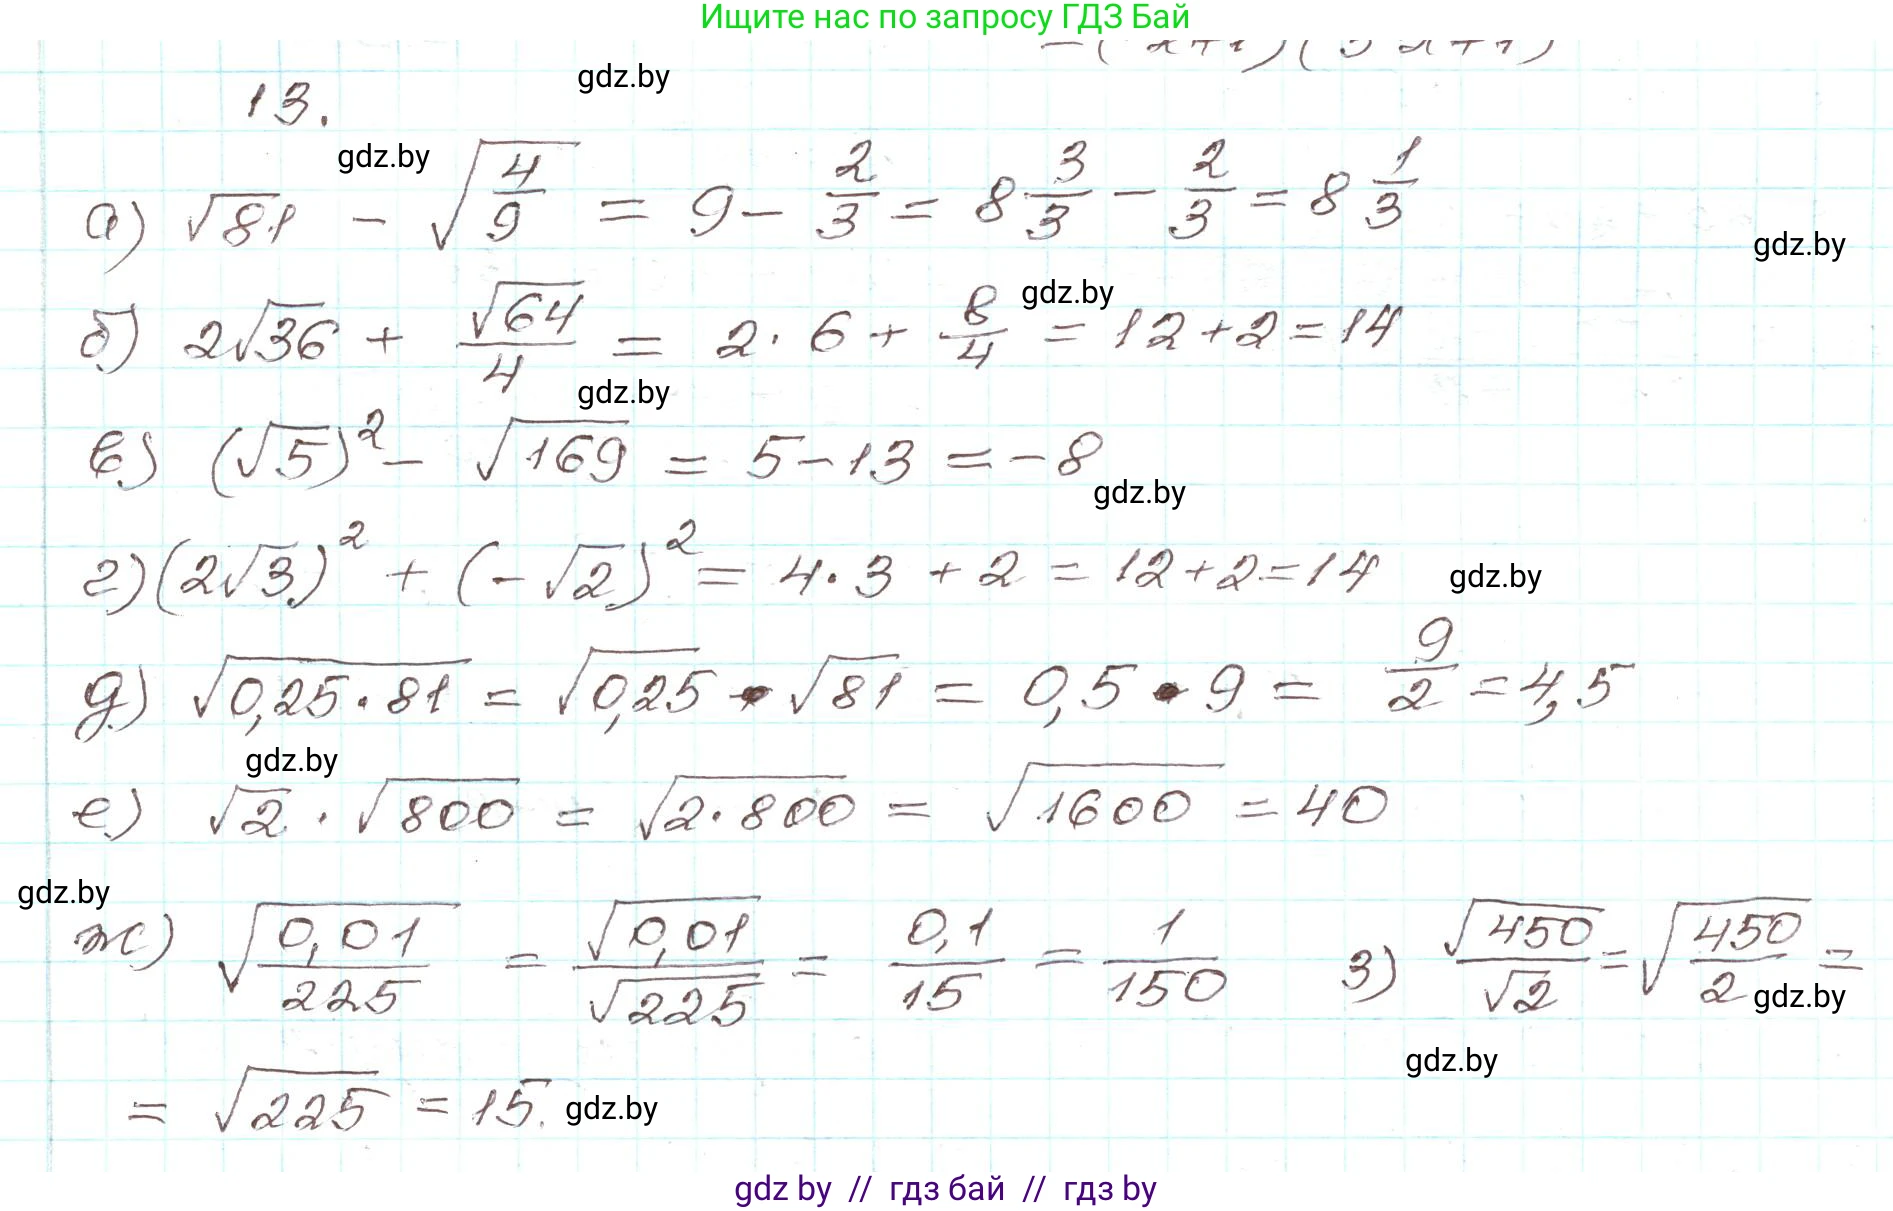 Ищите нас по запросу ГДЗ Бай
13. gdz.by
gdz.by
а) √81 - √(4/9) = 9 - 2/3 = 8 3/3 - 2/3 = 8 1/3
gdz.by
gdz.by
б) 2√36 + √64/4 = 2 · 6 + 8/4 = 12 + 2 = 14
gdz.by
в) (√5)² - √169 = 5 - 13 = -8
gdz.by
г) (2√3)² + (-√2)² = 4 · 3 + 2 = 12 + 2 = 14 gdz.by
д) √(0,25 · 81) = √0,25 · √81 = 0,5 · 9 = 9/2 = 4,5
gdz.by
е) √2 · √800 = √(2 · 800) = √1600 = 40
gdz.by
ж) √(0,01/225) = √0,01/√225 = 0,1/15 = 1/150 з) √450/√2 = √(450/2) =
gdz.by
gdz.by
= √225 = 15. gdz.by
gdz by // гдз бай // гдз by